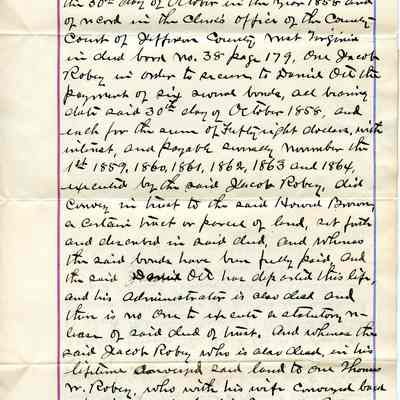 the 30th day of October in the year 1858 and
of record in the Clerks office of the County
Court of Jefferson County West Virginia
in deed book No. 38 page 179, One Jacob
Robey in order to secure to Daniel Ott the
payment of six several bonds, all bearing
date said 30th day of October 1858, and
each for the sum of Fifty eight dollars, with
interest, and payable severally November the
1st 1859, 1860, 1861, 1862, 1863 and 1864,
executed by the said Jacob Robey, did
Convey in trust to the said Howard Brown,
a certain tract or parcel of land, set forth
and described in said deed, and whereas
the said bonds have been fully paid, and
the said Daniel Ott has departed this life,
and his Administrator is also dead and
there is no one to execute a statutory re-
lease of said deed of trust. And whereas the
said Jacob Robey who is also dead, in his
lifetime Conveyed said land to one Thomas
W. Robey, who with his wife Conveyed back